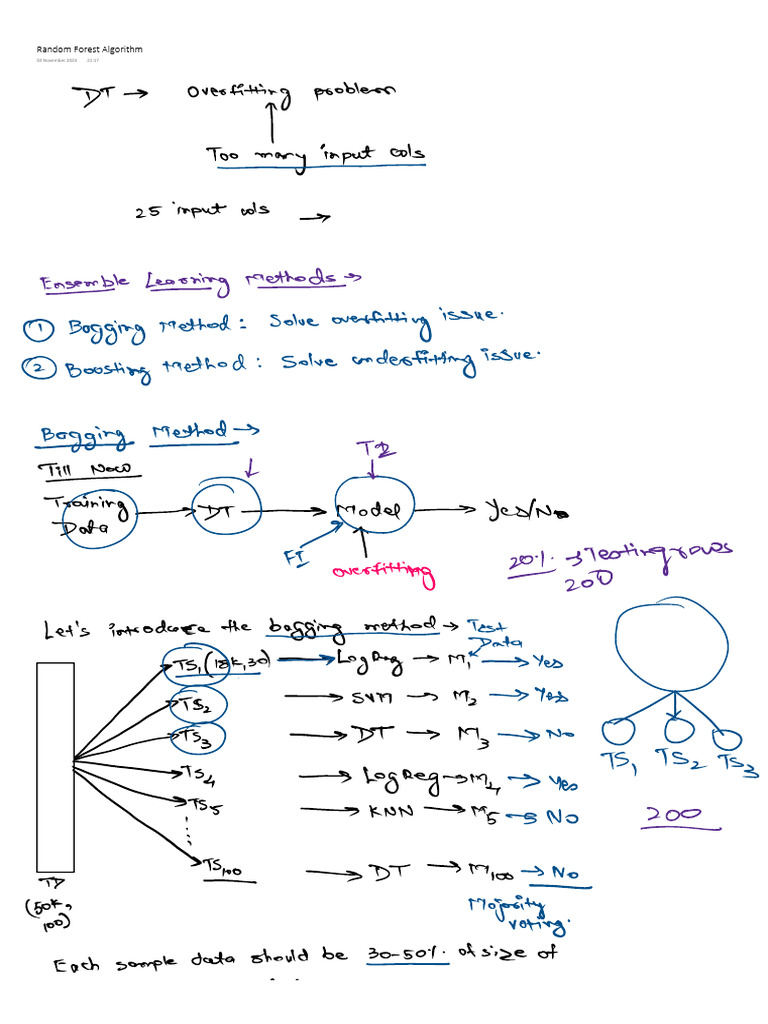 Random Forest Algorithm
03 November 2024 21:17
DT → Overfitting problem
Too many input cols
25 input cols →
Ensemble Learning Methods →
① Bagging Method : Solve overfitting issue.
② Boosting Method : Solve underfitting issue.
Bagging Method →
Till Now
Training Data → DT → Model → Yes/No
FI
overfitting
20% → Testing rows
200
Let's introduce the bagging method → Test Data
TS1 (18K, 30) → LogReg → M1 → Yes
TS2 SVM → M2 → Yes
TS3 → DT → M3 → No
TS4 → LogReg → M4 → Yes
TS5 → KNN → M5 → No
TS100 → DT → M100 → No
TS1 TS2 TS3
200
TD
(50K, 100)
Majority voting.
Each sample data should be 30-50% of size of